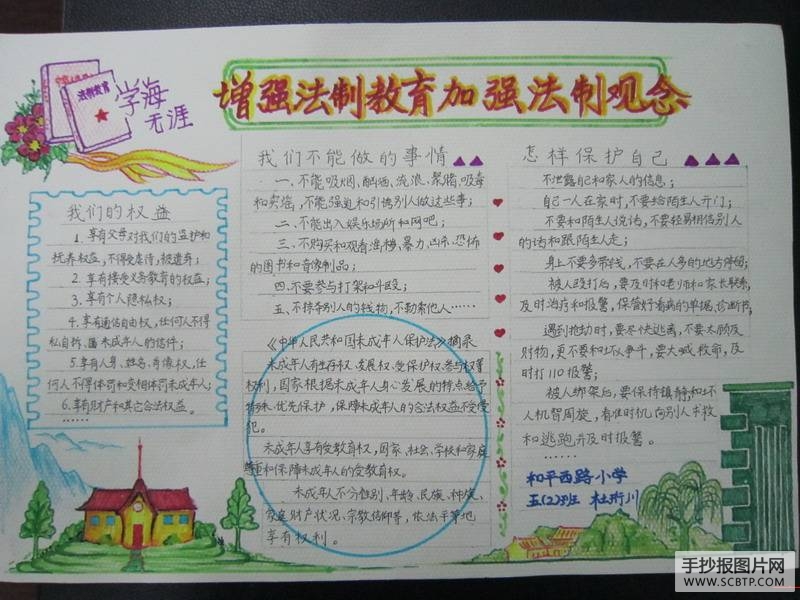 增强法制教育加强法制观念
法制教育
学海
无涯
我们的权益
1. 享有父母对我们的监护和
抚养权益,不得虐待,被遗弃;
2. 享有接受义务教育的权益;
3. 享有个人隐私权;
4. 享有通信自由权,任何人不得
私自拆、藏未成年人的信件;
5. 享有人身、姓名、肖像权,任
何人不得体罚和变相体罚未成年人;
6. 享有财产和其它合法权益。
……
我们不能做的事情
一、不能吸烟、酗酒、流浪、聚赌、吸毒
和卖淫,不能强迫和引诱别人做这些事;
二、不能出入娱乐场所和网吧;
三、不购买和观看淫秽、暴力、凶杀、恐怖
的图书和音像制品;
四、不要参与打架和斗殴;
五、不掠夺别人的钱物,不勒索他人……
《中华人民共和国未成年人保护法》摘录
未成年人有生存权、发展权、受保护权、参与权等
权利,国家根据未成年人身心发展的特点给予
特殊、优先保护,保障未成年人的合法权益不受侵
犯。
未成年人享有受教育权,国家、社会、学校和家庭
尊重和保障未成年人的受教育权。
未成年人不分性别、年龄、民族、种族、
家庭财产状况、宗教信仰等,依法平等地
享有权利。
怎样保护自己
不泄露自己和家人的信息;
自己一人在家时,不要给陌生人开门;
不要和陌生人说话,不要轻易相信别人
的话和跟陌生人走;
身上不要多带钱,不要在人多的地方停留;
被人殴打后,要及时和老师和家长联系,
及时治疗和报警,保管好看病的单据、诊断书;
遇到抢劫时,要尽快逃离,不要太顾及
财物,更不要和坏人争斗,要大喊救命,及
时打110报警;
被人绑架后,要保持镇静,和坏
人机智周旋,有准时机向别人求救
和逃跑并及时报警。
……
和平西路小学
五(2)班 杜珩川
手抄报图片网
WWW.SCBTP.COM